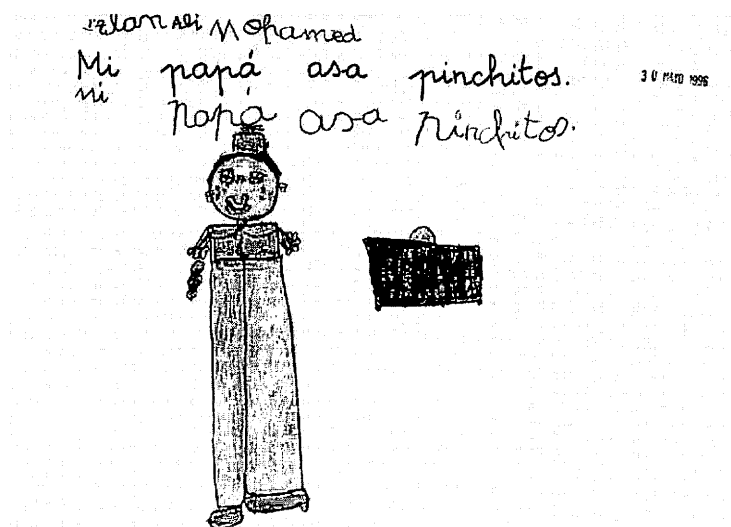 Ali Mohamed
Mi papá asa pinchitos.
30 MAYO 1996
mi papá asa pinchitos.